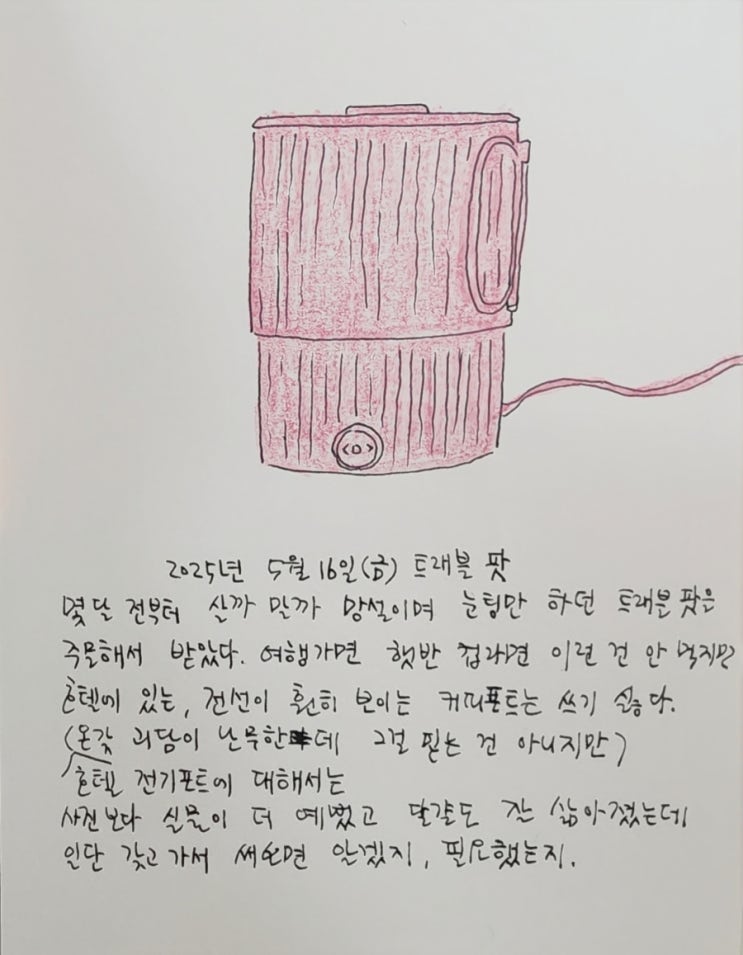 2025년 5월 16일(금) 트래블 팟
몇달 전부터 살까 말까 망설이며 눈팅만 하던 트래블팟을
주문해서 받았다. 여행가면 햇반 컵라면 이런 건 안 먹지만
호텔에 있는, 전선이 훤히 보이는 커피포트는 쓰기 싫다.
(온갖 괴담이 난무한데 그걸 믿는 건 아니지만)
호텔 전기포트에 대해서는
사진보다 실물이 더 예뻤고 달걀도 잘 삶아졌는데
일단 갖고 가서 써보면 알겠지, 필요했는지.